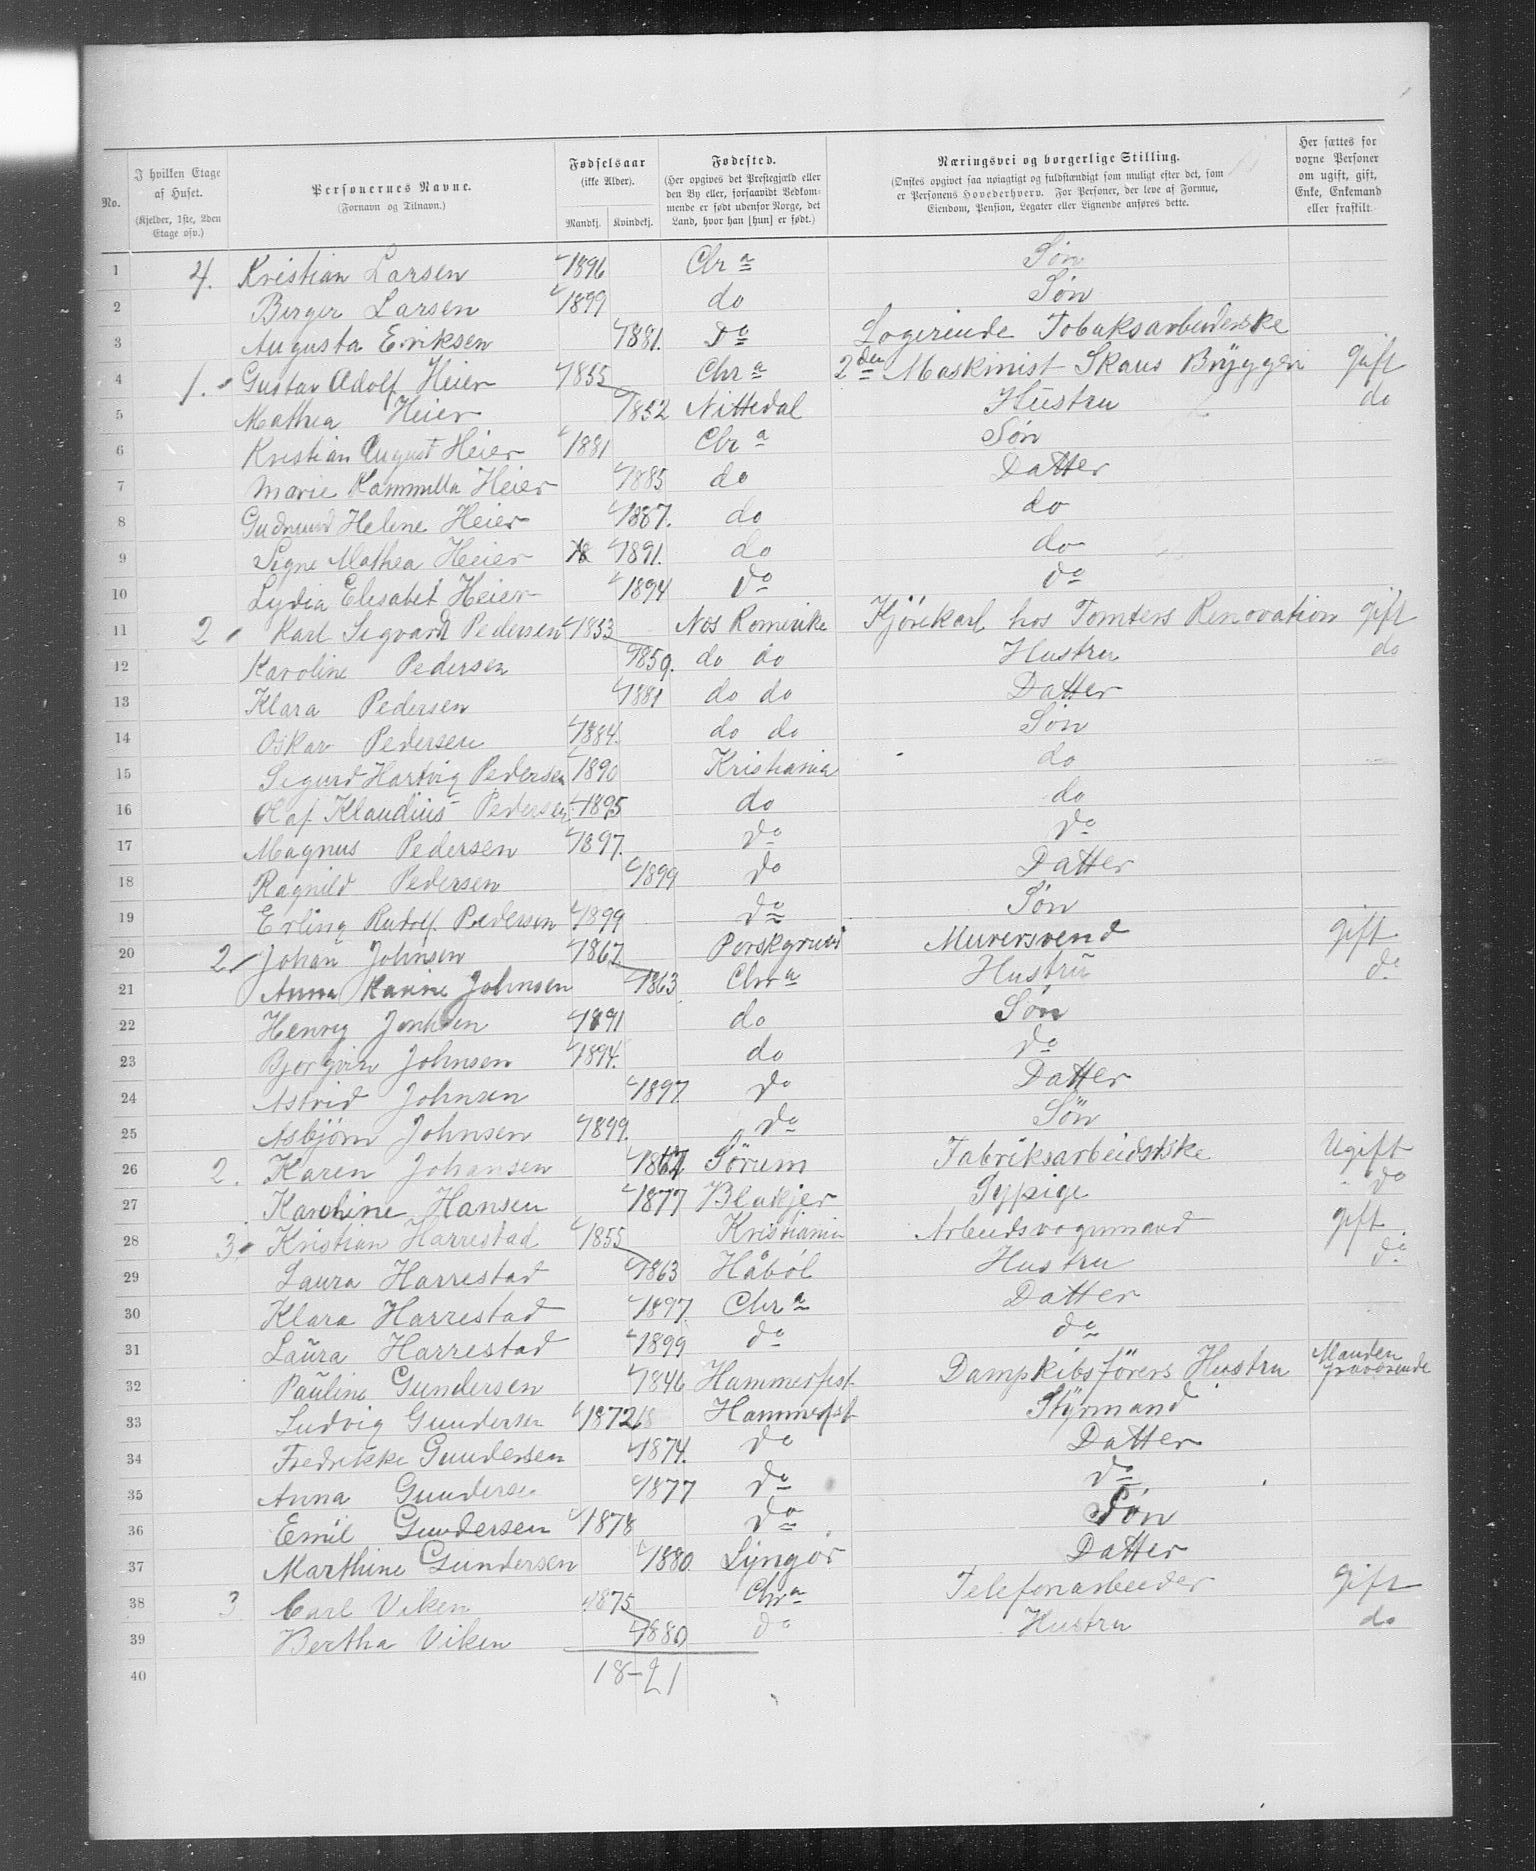 No.
I hvilken Etage af Huset.
(Kjelder, 1ste, 2den Etage osv.)
Personernes Navne.
(Fornavn og Tilnavn.)
Fødselsaar
(ikke Alder).
Mandkj. Kvindekj.
Fødested.
(Her opgives det Prestegjæld eller den By eller, forsaavidt Vedkommende er født udenfor Norge, det Land, hvor han [hun] er født.)
Næringsvei og borgerlige Stilling.
(Ønskes opgivet saa nøiagtigt og fuldstændigt som muligt efter det, som er Personens Hovederhverv. For Personer, der leve af Formue, Eiendom, Pension, Legater eller Lignende anføres dette.
Her sættes for voxne Personer om ugift, gift, Enke, Enkemand eller fraskilt.
1 4. Kristian Larsen 1896 Chr a Søn
2 Birger Larsen 1899 do Søn
3 Augusta Eriksen 1881. Do Logerende Tobaksarbeiderske
4 1. Gustav Adolf Heier 1855 Chr a 2den Maskinist Skaus Bryggeri gift
5 Mathea Heier 1852 Nittedal Hustru do
6 Kristian August Heier 1881 Chr a Søn
7 Marie Kammilla Heier 1885 do Datter
8 Gudmund Helene Heier 1887. do do
9 Signe Mathea Heier 18 1891. do do
10 Lydia Elisabet Heier 1894 do do
11 2 Karl Sigvardt Pedersen 1853 Nos Romerike Kjørekarl hos Tomters Renovation gift
12 Karoline Pedersen 1859. do do Hustru do
13 Klara Pedersen 1881 do do Datter
14 Oskar Pedersen 1884. do do Søn
15 Sigurd Hartvig Pedersen 1890 Kristiania do
16 Olaf Klaudius Pedersen 1895 do do
17 Magnus Pedersen 1897. do do
18 Ragnild Pedersen 1899 do Datter
19 Erling Rudolf Pedersen 1899 do Søn
20 2 Johan Johnsen 1867. Porskgrund Murersvend gift
21 Anna Karine Johnsen 1863 Chr a Hustru do
22 Henry Johnsen 1891 do Søn
23 Bjorgvin Johnsen 1894. do do
24 Astrid Johnsen 1897 do Datter
25 Asbjörn Johnsen 1899. do Sön
26 2. Karen Johansen Sörum Fabriksarbeiderske Ugift
27 Karoline Hansen 1877 Blakjer Sypige do
28 3. Kristian Harrestad 1855 Kristiania Arbeidsvognmand gift
29 Laura Harrestad 1863 Håböl Hustru do
30 Klara Harrestad 1897 Chr a Datter
31 Laura Harrestad 1899 do do
32 Pauline Gundersen 1846 Hammerfest Dampkibsförers Hustru Manden fraværende
33 Ludvig Gundersen 1872 18 Hammerfst Styrmand
34 Fredrikke Gundersen 1874. do Datter
35 Anna Gundersen 1877 do do
36 Emil Gundersen 1878 do Søn
37 Marthine Gundersen 1880 Lyngør Datter
38 3 Carl Viken 1875 Chr a Telefonarbeider gift
39 Bertha Viken 1880 do Hustru do
40 18-21